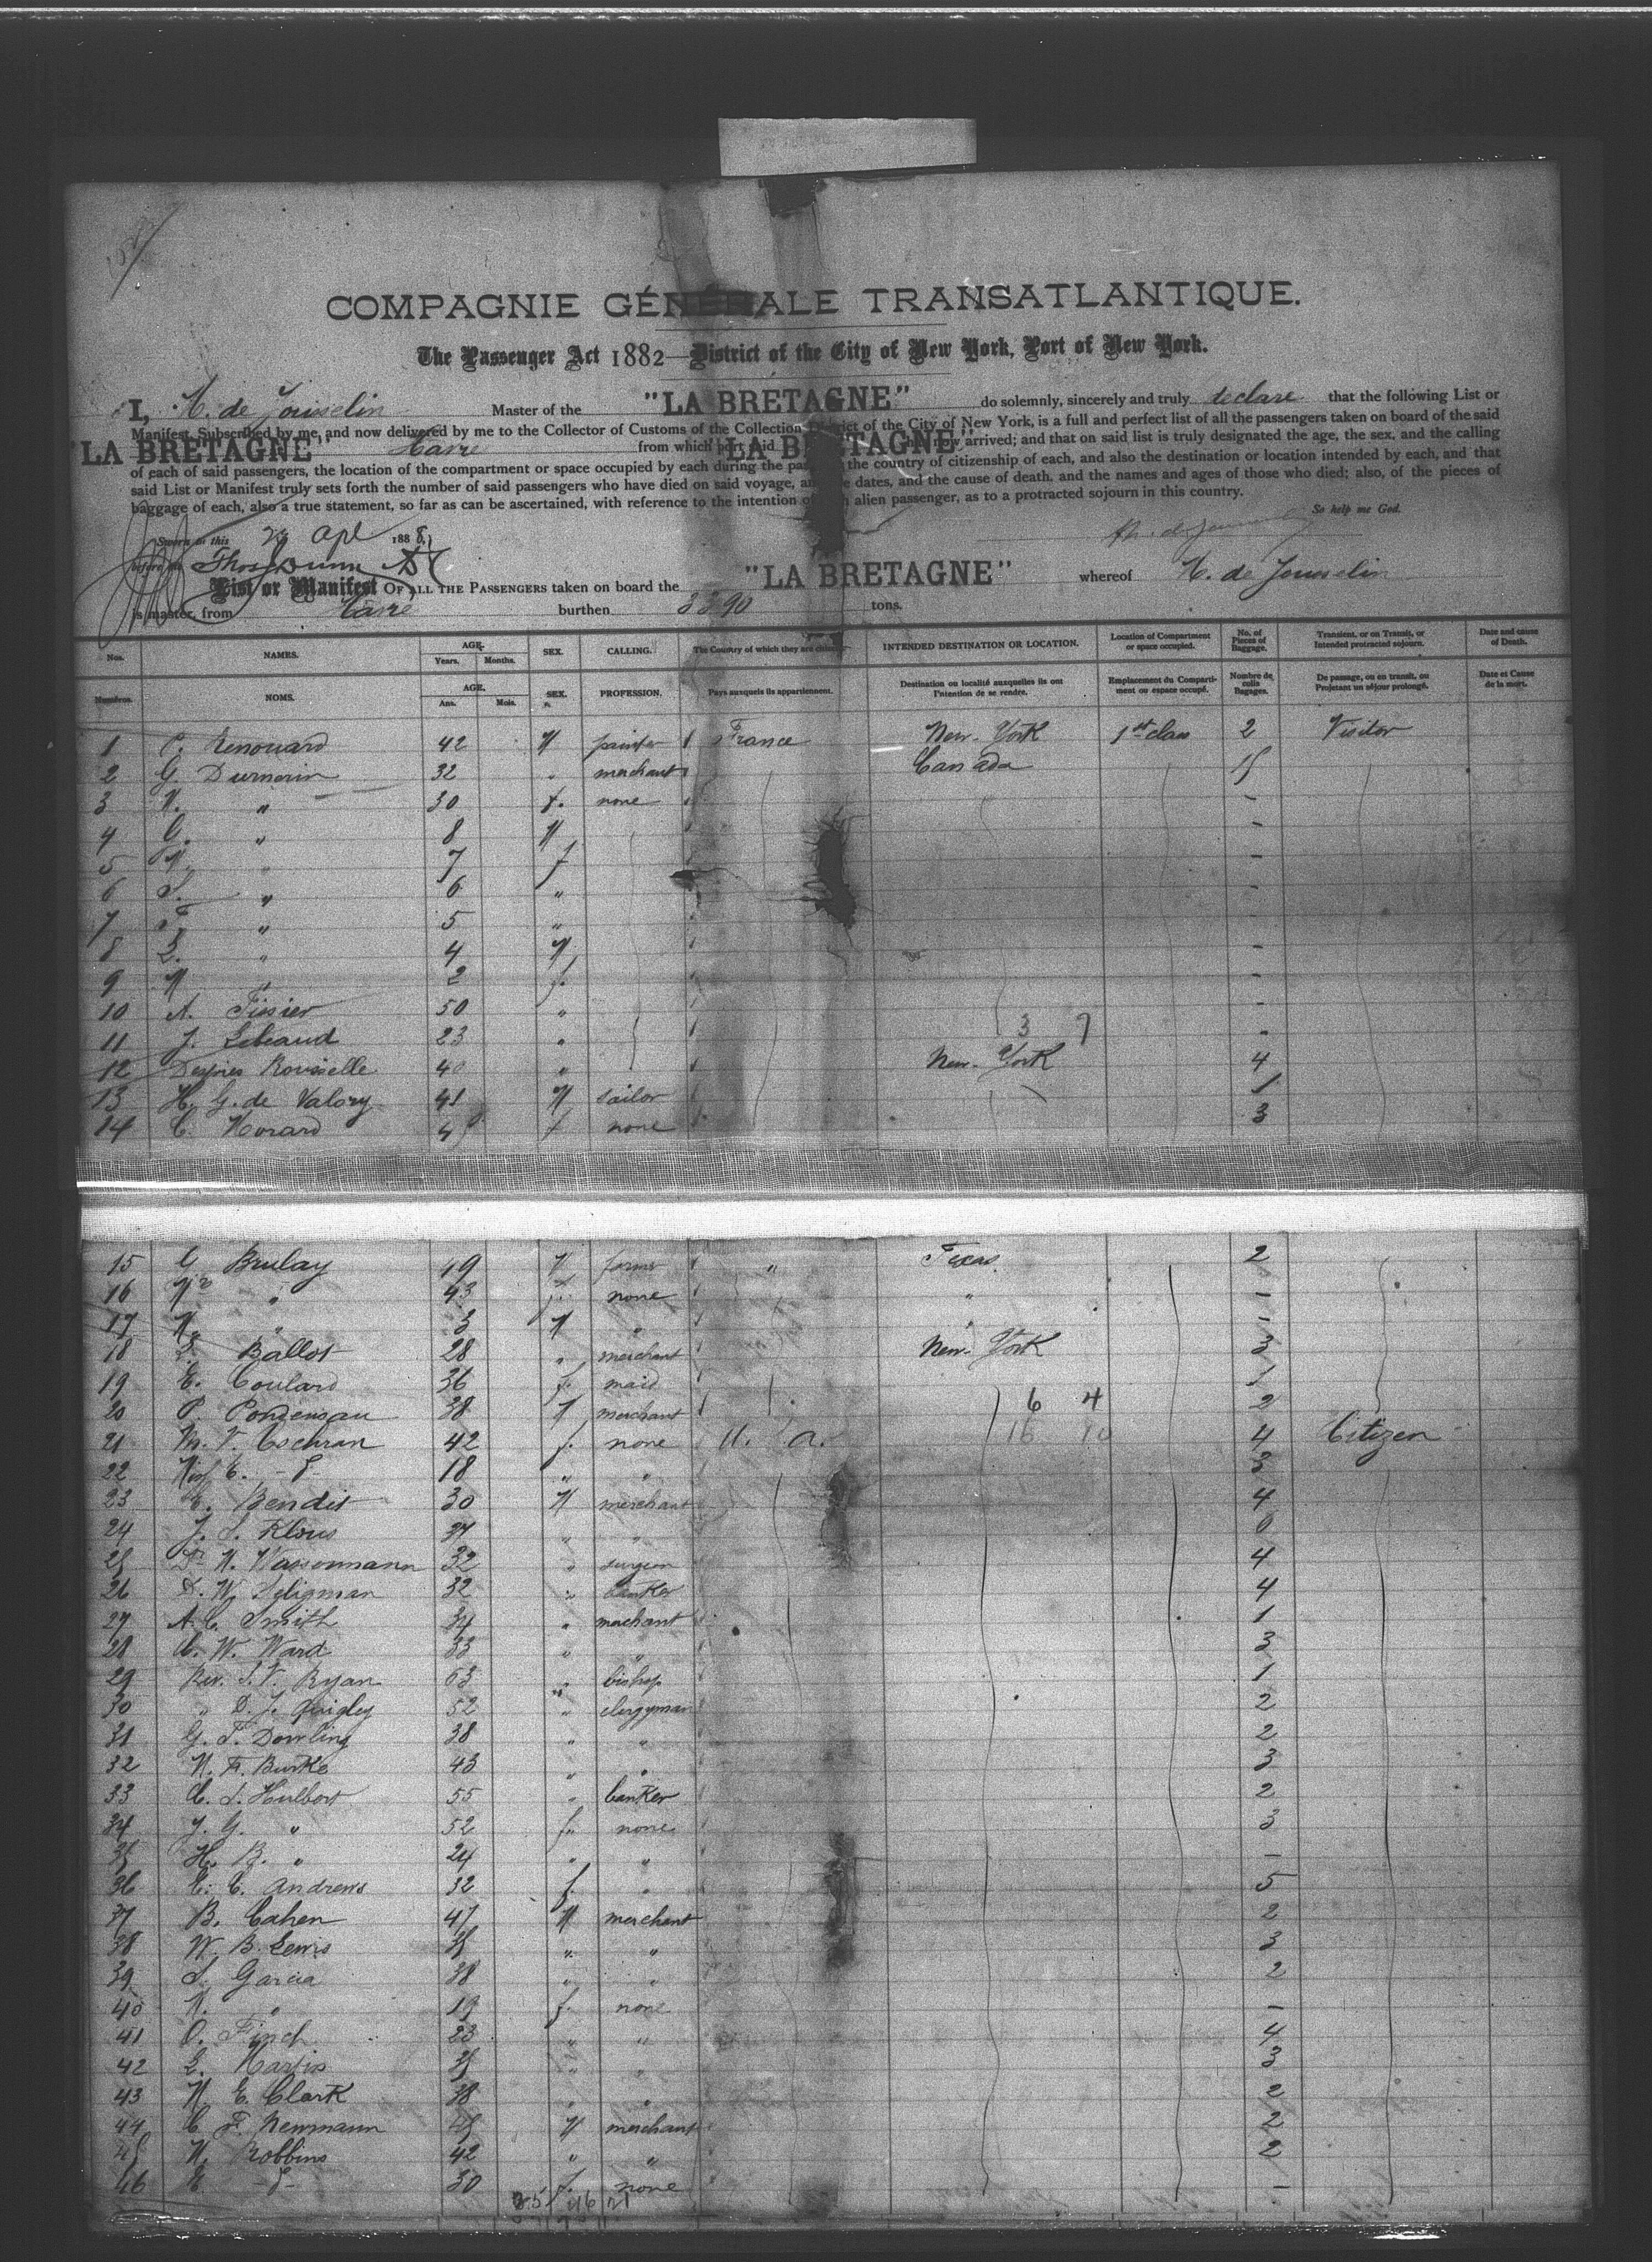 COMPAGNIE GÉNÉRALE TRANSATLANTIQUE.
The Passenger Act 1882—District of the City of New York, Port of New York.
I, de Jousselin Master of the "LA BRETAGNE" do solemnly, sincerely and truly declare that the following List or
Manifest, Subscribed by me, and now delivered by me to the Collector of Customs of the Collection District of the City of New York, is a full and perfect list of all the passengers taken on board of the said
"LA BRETAGNE" Havre from which port said "LA BRETAGNE" has now arrived; and that on said list is truly designated the age, the sex, and the calling
of each of said passengers, the location of the compartment or space occupied by each during the the country of citizenship of each, and also the destination or location intended by each, and that
said List or Manifest truly sets forth the number of said passengers who have died on said voyage, and the dates, and the cause of death, and the names and ages of those who died; also, of the pieces of
baggage of each, also a true statement, so far as can be ascertained, with reference to the intention of each alien passenger, as to a protracted sojourn in this country.
So help me God.
Sworn to this 23 Apl 1888,
before me Thos Dunn
List or Manifest OF ALL THE PASSENGERS taken on board the "LA BRETAGNE" whereof de Jousselin
is master, from Havre burthen 3390 tons.
Nos. NAMES. AGE. Years. Months. SEX. CALLING. The Country of which they are citizens. INTENDED DESTINATION OR LOCATION. Location of Compartment or space occupied. No. of Pieces of Baggage. Transient, or on Transit, or Intended protracted sojourn. Date and cause of Death.
Numéros. NOMS. AGE. Ans. Mois. SEX. PROFESSION. Pays auxquels ils appartiennent. Destination ou localité auxquelles ils ont l'intention de se rendre. Emplacement du Compartiment ou espace occupé. Nombre de colis Bagages. De passage, ou en transit, ou Projetant un séjour prolongé. Date et Cause de la mort.
1 P. Renouard 42 M painter France New-York 1st class 2 Visitor
2 G. Dumerin 32 " merchant Canada 15
3 M. " 30 f. none -
4 G. " 8 M -
5 M. " 7 f -
6 S. " 6 " -
7 F. " 5 "
8 L. " 4 M -
9 M " 2 f. -
10 A. Tissier 50 " -
11 J. Lebeaud 23 " 3 7 -
12 Rousselle 40 " New-York 4
13 H. G. de Valory 41 M sailor 1
14 C. Morard 45 f none 3
15 G Brulay 49 M " Texas 2
16 " 43 f. none " -
17 M. " 3 M " " -
18 L. Ballot 28 " merchant New-York 3
19 E. Coulard 36 f. maid 1
20 P. 38 M merchant 6 4 2
21 M. V. Cochran 42 f. none U. a. 16 10 4 Citizen
22 Miss C. -d- 18 " " 3
23 E. Bendit 30 M merchant 4
24 J. S. Klous 37 " " 6
25 Dr M. Wassermann 32 " surgeon 4
26 D. W. Seligman 32 " banker 4
27 A. C. Smith 34 " merchant 1
28 C. W. Ward 33 " " 3
29 Rev. S. V. Ryan 63 " bishop 1
30 " D. J. Quigley 52 " clergyman 2
31 G. T. Dowling 38 " " 2
32 M. F. Burke 43 " " 3
33 C. S. Hulbert 55 " banker 2
34 J. G. " 52 f. none 3
35 H. B. " 24 " " -
36 E. C. Andrews 32 f. " 5
37 B. Cahen 47 M merchant 2
38 W. B. Lewis 35 " " 3
39 S. Garcia 38 " " 2
40 M. " 19 f. none -
41 O. Finch 23 " " 4
42 L. Martin 35 " " 3
43 M E. Clark 38 " " 2
44 C. F. Newmann 45 M merchant 2
45 M. Robbins 42 " " 2
46 E. -d- 30 f. none -
25 46 21